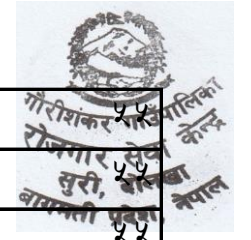 गौरीशंकर गाउँपालिका
५५
रोजगार सेवा केन्द्र
५५
सुरी, दोलखा
बागमती प्रदेश, नेपाल
५५